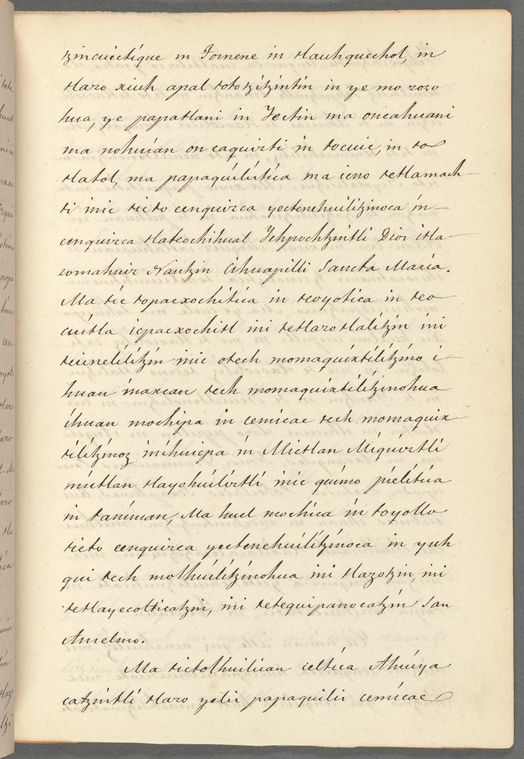 tzincuictique in Tornene in tlauhquechol, in
tlazo xiuh apal tototzitzintin in ye mo zozo
hua, ye papatlani in Yectin ma oncahuani
ma nohuian on caquizti in tocuic, in to
tlatol, ma papaquilitica ma icno tetlamach-
ti inic ticto cenquizca yectenehuilitzinoca in-
cenquizca tlateochihual Ichpochtzintli Dios itla
zomahuiz Nantzin Cihuapilli Sancta Maria.
Ma tic topacxochitica in teoyotica in teo
cuitla icpacxochitl ini tetlazotlalitzin ini
teicnelilitzin inic otech momaquixtilitzino i-
huan inaxcan tech momaquixtilitzinohua
ihuan mochipa in cemicac tech momaquix-
tilitzinoz inihuicpa in Mictlan Miquiztli
mictlan tlayohuiliztli inic quimo pielitica
in taniman, Ma huel mochica in toyollo
ticto cenquizca yectenehuilitzinoca in yuh
qui tech molhuilitzinohua ini tlazotzin, ini
tetlayecolticatzin, ini tetequipanocatzin San
Anselmo.
Ma tictolhuilican celtica Ahuiya
catzintli tlazo yelii papaquilii cemicac